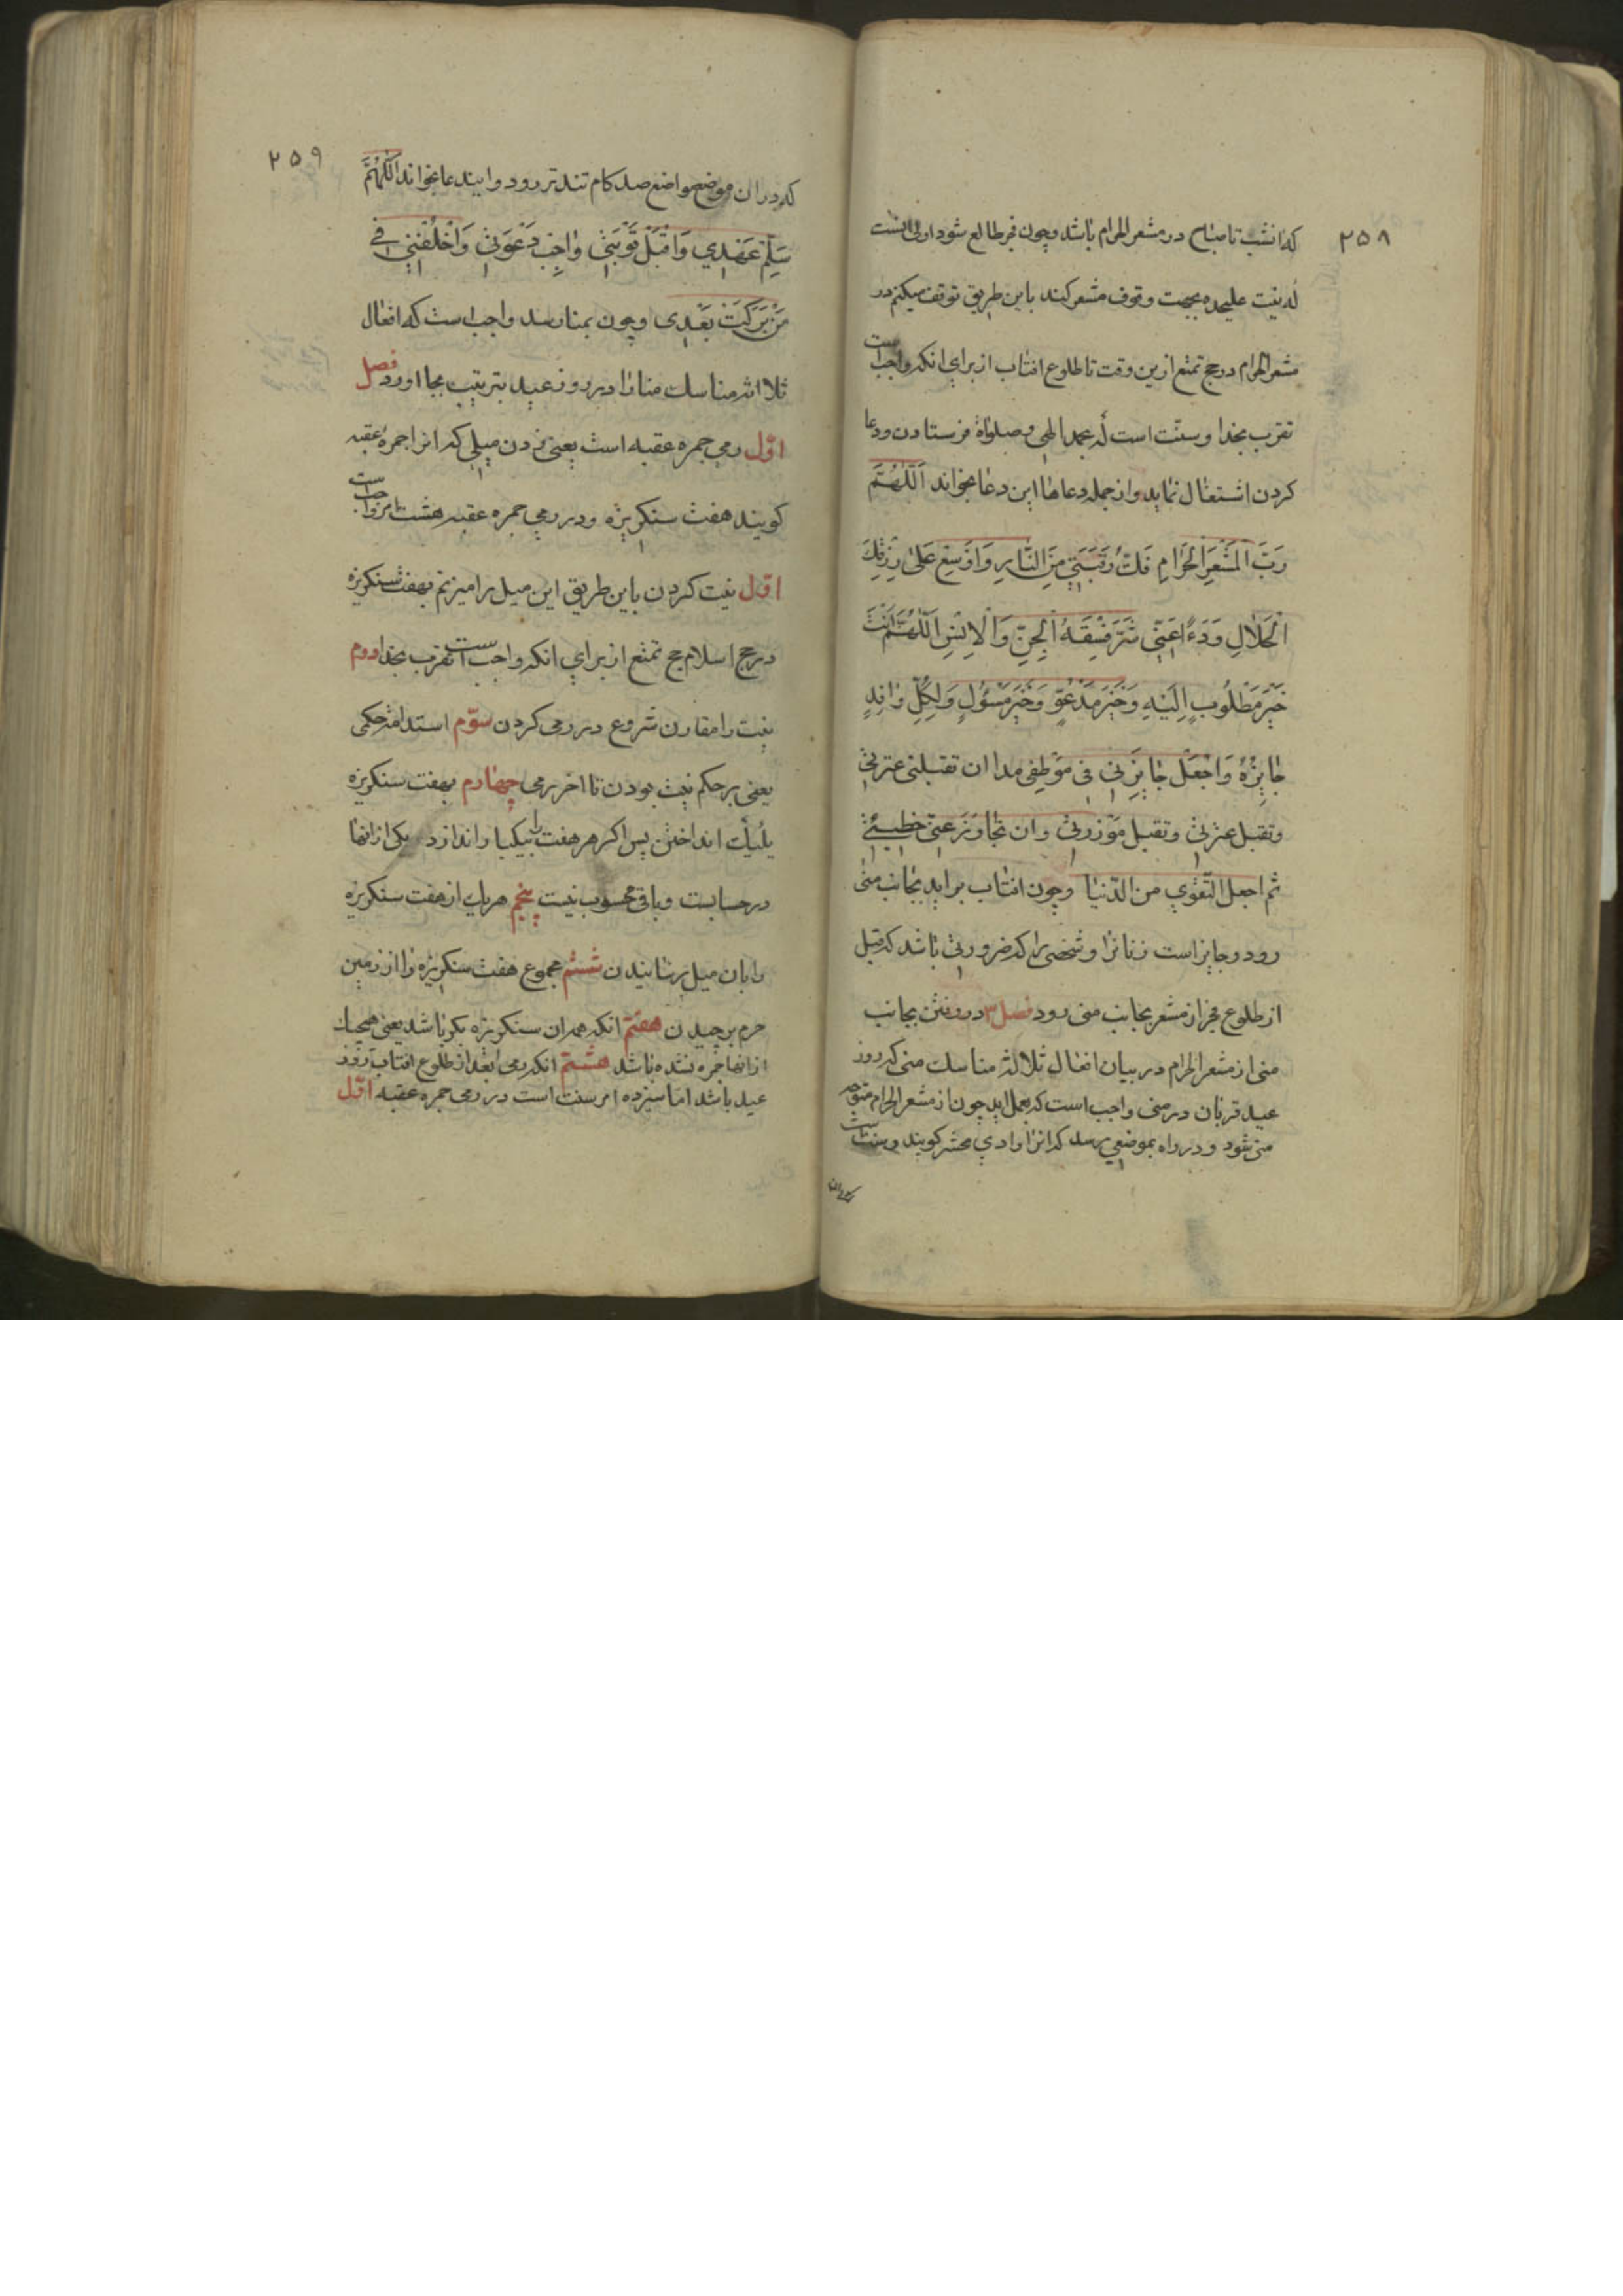 ۲۵۸
که انشب تا صباح در مشعر الحرام باشد و چون فجر طالع شود اولی انست
که نیت علیحده بجهت وقوف مشعر کند باین طریق توقف میکنم در
مشعر الحرام در حج تمتع ازین وقت تا طلوع افتاب از برای انکه واجب است
تقرب بخدا و سنت است که بحمد الهی و صلواة فرستادن و دعا
کردن اشتغال نماید و از جمله دعاها این دعا بخواند اَللّٰهُمَّ
رَبَّ الْمَشْعَرِ الْحَرَامِ فَكَّ رَقَبَتِي مِنَ النَّارِ وَاَوْسِعْ عَلَىٰ رِزْقِكَ
الْحَلَالِ وَدَءْ اعَنِّي شَرَّ فَسَقَةِ الْجِنِّ وَالْاِنْسِ اَللّٰهُمَّ اَنْتَ
خَيْرَ مَطْلُوبٍ اِلَيْهِ وَخَيْرَ مَدْعُوٍّ وَخَيْرَ مَسْئُولٍ وَلِكُلِّ وَافِدٍ
جَايِزَةٌ وَاجْعَلْ جَايِزَتِي فِي مَوْطِفِي هذا ان تقیلنی عثرتی
وتقبل عثرتی وتقبل معذرتی وان تجاوَزَ عَنّی خطیئتی
ثم اجعل التّقوی من الدّنیا و چون افتاب براید بجانب منی
رود و جایز است زنانرا و شخصی را که ضرورتی باشد که قبل
از طلوع فجر از مشعر بجانب منی رود فصل ۳ در رفتن بجانب
منی از مشعر الحرام در بیان افعال ثلاثه مناسک منی که روز
عید قربان در منی واجب است که بعمل اید چون از مشعر الحرام متوجه
منی شود و در راه بموضعی رسد که انرا وادی محشر کویند و سنت است
۲۵۹
که در ان موضع مواضع صد کام تندتر رود و ایندعا بخواند اَللّٰهُمَّ
سَلِّمْ عَهْدِي وَاقْبَلْ تَوْبَتِي وَاجِبْ دَعْوَتِي وَاخْلُفْنِي فِي
مَنْ تَرَكْتُ بَعْدِي و چون بمنا رسد واجب است که افعال
ثلاثه مناسک منا را در روز عید بترتیب بجا اورد فصل
اوّل رمی جمره عقبه است یعنی زدن میلی که انرا جمرهٔ عقبه
کویند هفت سنکریزه و در رمی جمره عقبه هشت امر واجب است
اوّل نیت کردن باین طریق این میل را میزنم بهفت سنکریزه
در حج اسلام حج تمتع از برای انکه واجب است تقرب بخدا دوم
نیت را مقارن شروع در رمی کردن سوّم استدامهٔ حکمی
یعنی بر حکم نیت بودن تا اخر رمی چهارم بهفت سنکریزه
یکیک انداختن پس اکر هر هفت را بیکبار اندازد یکی ازانها
در حسابست و باقی محسوب نیست پنجم هر یک از هفت سنکریزه
را بان میل رسانیدن ششم مجموع هفت سنکریزه را از زمین
حرم برچیدن هفتم انکه همه ان سنکریزه بکر باشد یعنی هیچیک
ازانها جمره نشده باشد هشتم انکه رمی بعد از طلوع افتاب روز
عید باشد اما سیزده امر سنت است در رمی جمره عقبه اوّل